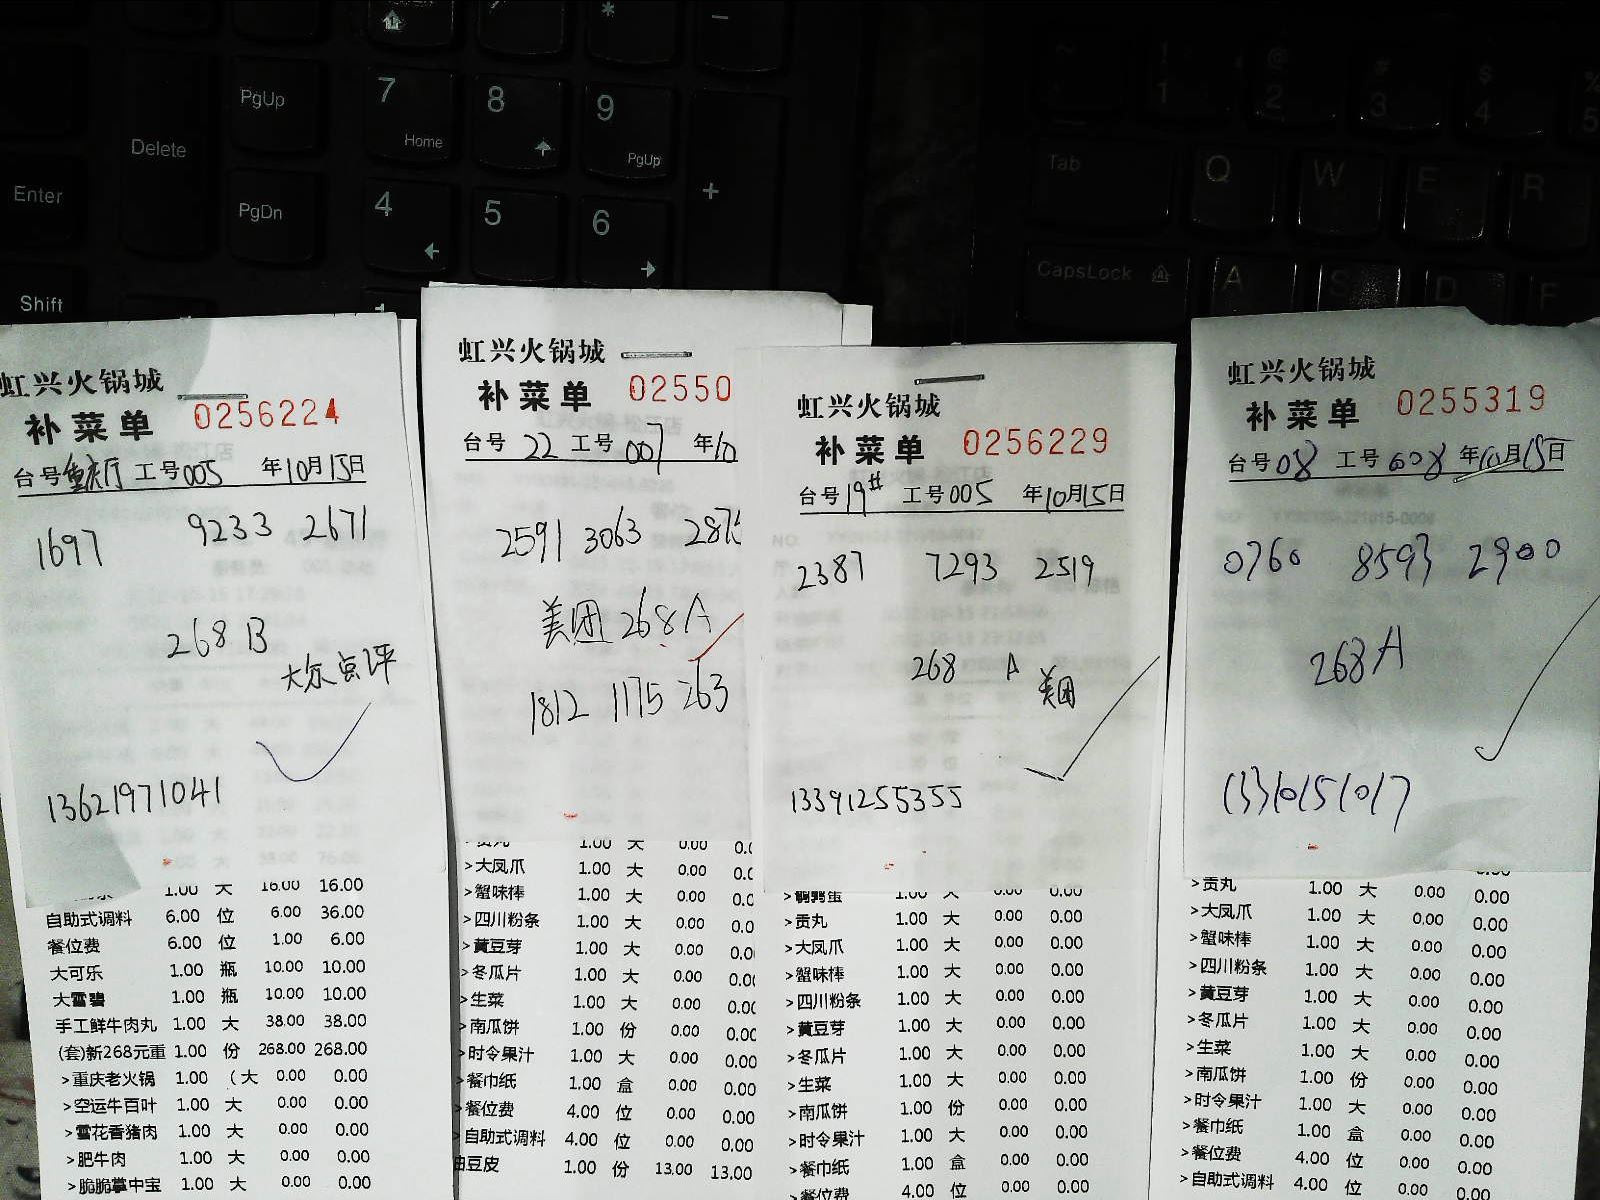 *
−
7
Home
8
9
PgUp
PgUp
Delete
+
Enter
PgDn
4
5
6
Shift
1
2
3
4
5
Tab
Q
W
E
R
CapsLock
A
S
D
F
虹兴火锅城
补菜单 0256224
台号重庆厅 工号005 年10月15日
1697 9233 2671
268 B
大众点评
13621971041
1.00 大 16.00 16.00
自助式调料 6.00 位 6.00 36.00
餐位费 6.00 位 1.00 6.00
大可乐 1.00 瓶 10.00 10.00
大雪碧 1.00 瓶 10.00 10.00
手工鲜牛肉丸 1.00 大 38.00 38.00
(套)新268元重 1.00 份 268.00 268.00
>重庆老火锅 1.00 (大 0.00 0.00
>空运牛百叶 1.00 大 0.00 0.00
>雪花香猪肉 1.00 大 0.00 0.00
>肥牛肉 1.00 大 0.00 0.00
>脆脆掌中宝 1.00 大 0.00 0.00
虹兴火锅城
补菜单 02550
台号 22 工号 007 年10
2591 3063 2875
美团 268A
1812 1175 263
>贡丸 1.00 大 0.00 0.0
>大凤爪 1.00 大 0.00 0.0
>蟹味棒 1.00 大 0.00 0.0
>四川粉条 1.00 大 0.00 0.0
>黄豆芽 1.00 大 0.00 0.0
>冬瓜片 1.00 大 0.00 0.0
>生菜 1.00 大 0.00 0.00
>南瓜饼 1.00 份 0.00 0.00
>时令果汁 1.00 大 0.00 0.00
>餐巾纸 1.00 盒 0.00 0.00
>餐位费 4.00 位 0.00 0.00
>自助式调料 4.00 位 0.00 0.00
油豆皮 1.00 份 13.00 13.00
虹兴火锅城
补菜单 0256229
台号19# 工号005 年10月15日
2387 7293 2519
268 A 美团
13391255355
>鹌鹑蛋 1.00 大 0.00 0.00
>贡丸 1.00 大 0.00 0.00
>大凤爪 1.00 大 0.00 0.00
>蟹味棒 1.00 大 0.00 0.00
>四川粉条 1.00 大 0.00 0.00
>黄豆芽 1.00 大 0.00 0.00
>冬瓜片 1.00 大 0.00 0.00
>生菜 1.00 大 0.00 0.00
>南瓜饼 1.00 份 0.00 0.00
>时令果汁 1.00 大 0.00 0.00
>餐巾纸 1.00 盒 0.00 0.00
>餐位费 4.00 位 0.00 0.00
虹兴火锅城
补菜单 0255319
台号08 工号008 年10月15日
0760 8593 2900
268A
13310151017
>贡丸 1.00 大 0.00 0.00
>大凤爪 1.00 大 0.00 0.00
>蟹味棒 1.00 大 0.00 0.00
>四川粉条 1.00 大 0.00 0.00
>黄豆芽 1.00 大 0.00 0.00
>冬瓜片 1.00 大 0.00 0.00
>生菜 1.00 大 0.00 0.00
>南瓜饼 1.00 份 0.00 0.00
>时令果汁 1.00 大 0.00 0.00
>餐巾纸 1.00 盒 0.00 0.00
>餐位费 4.00 位 0.00 0.00
>自助式调料 4.00 位 0.00 0.00